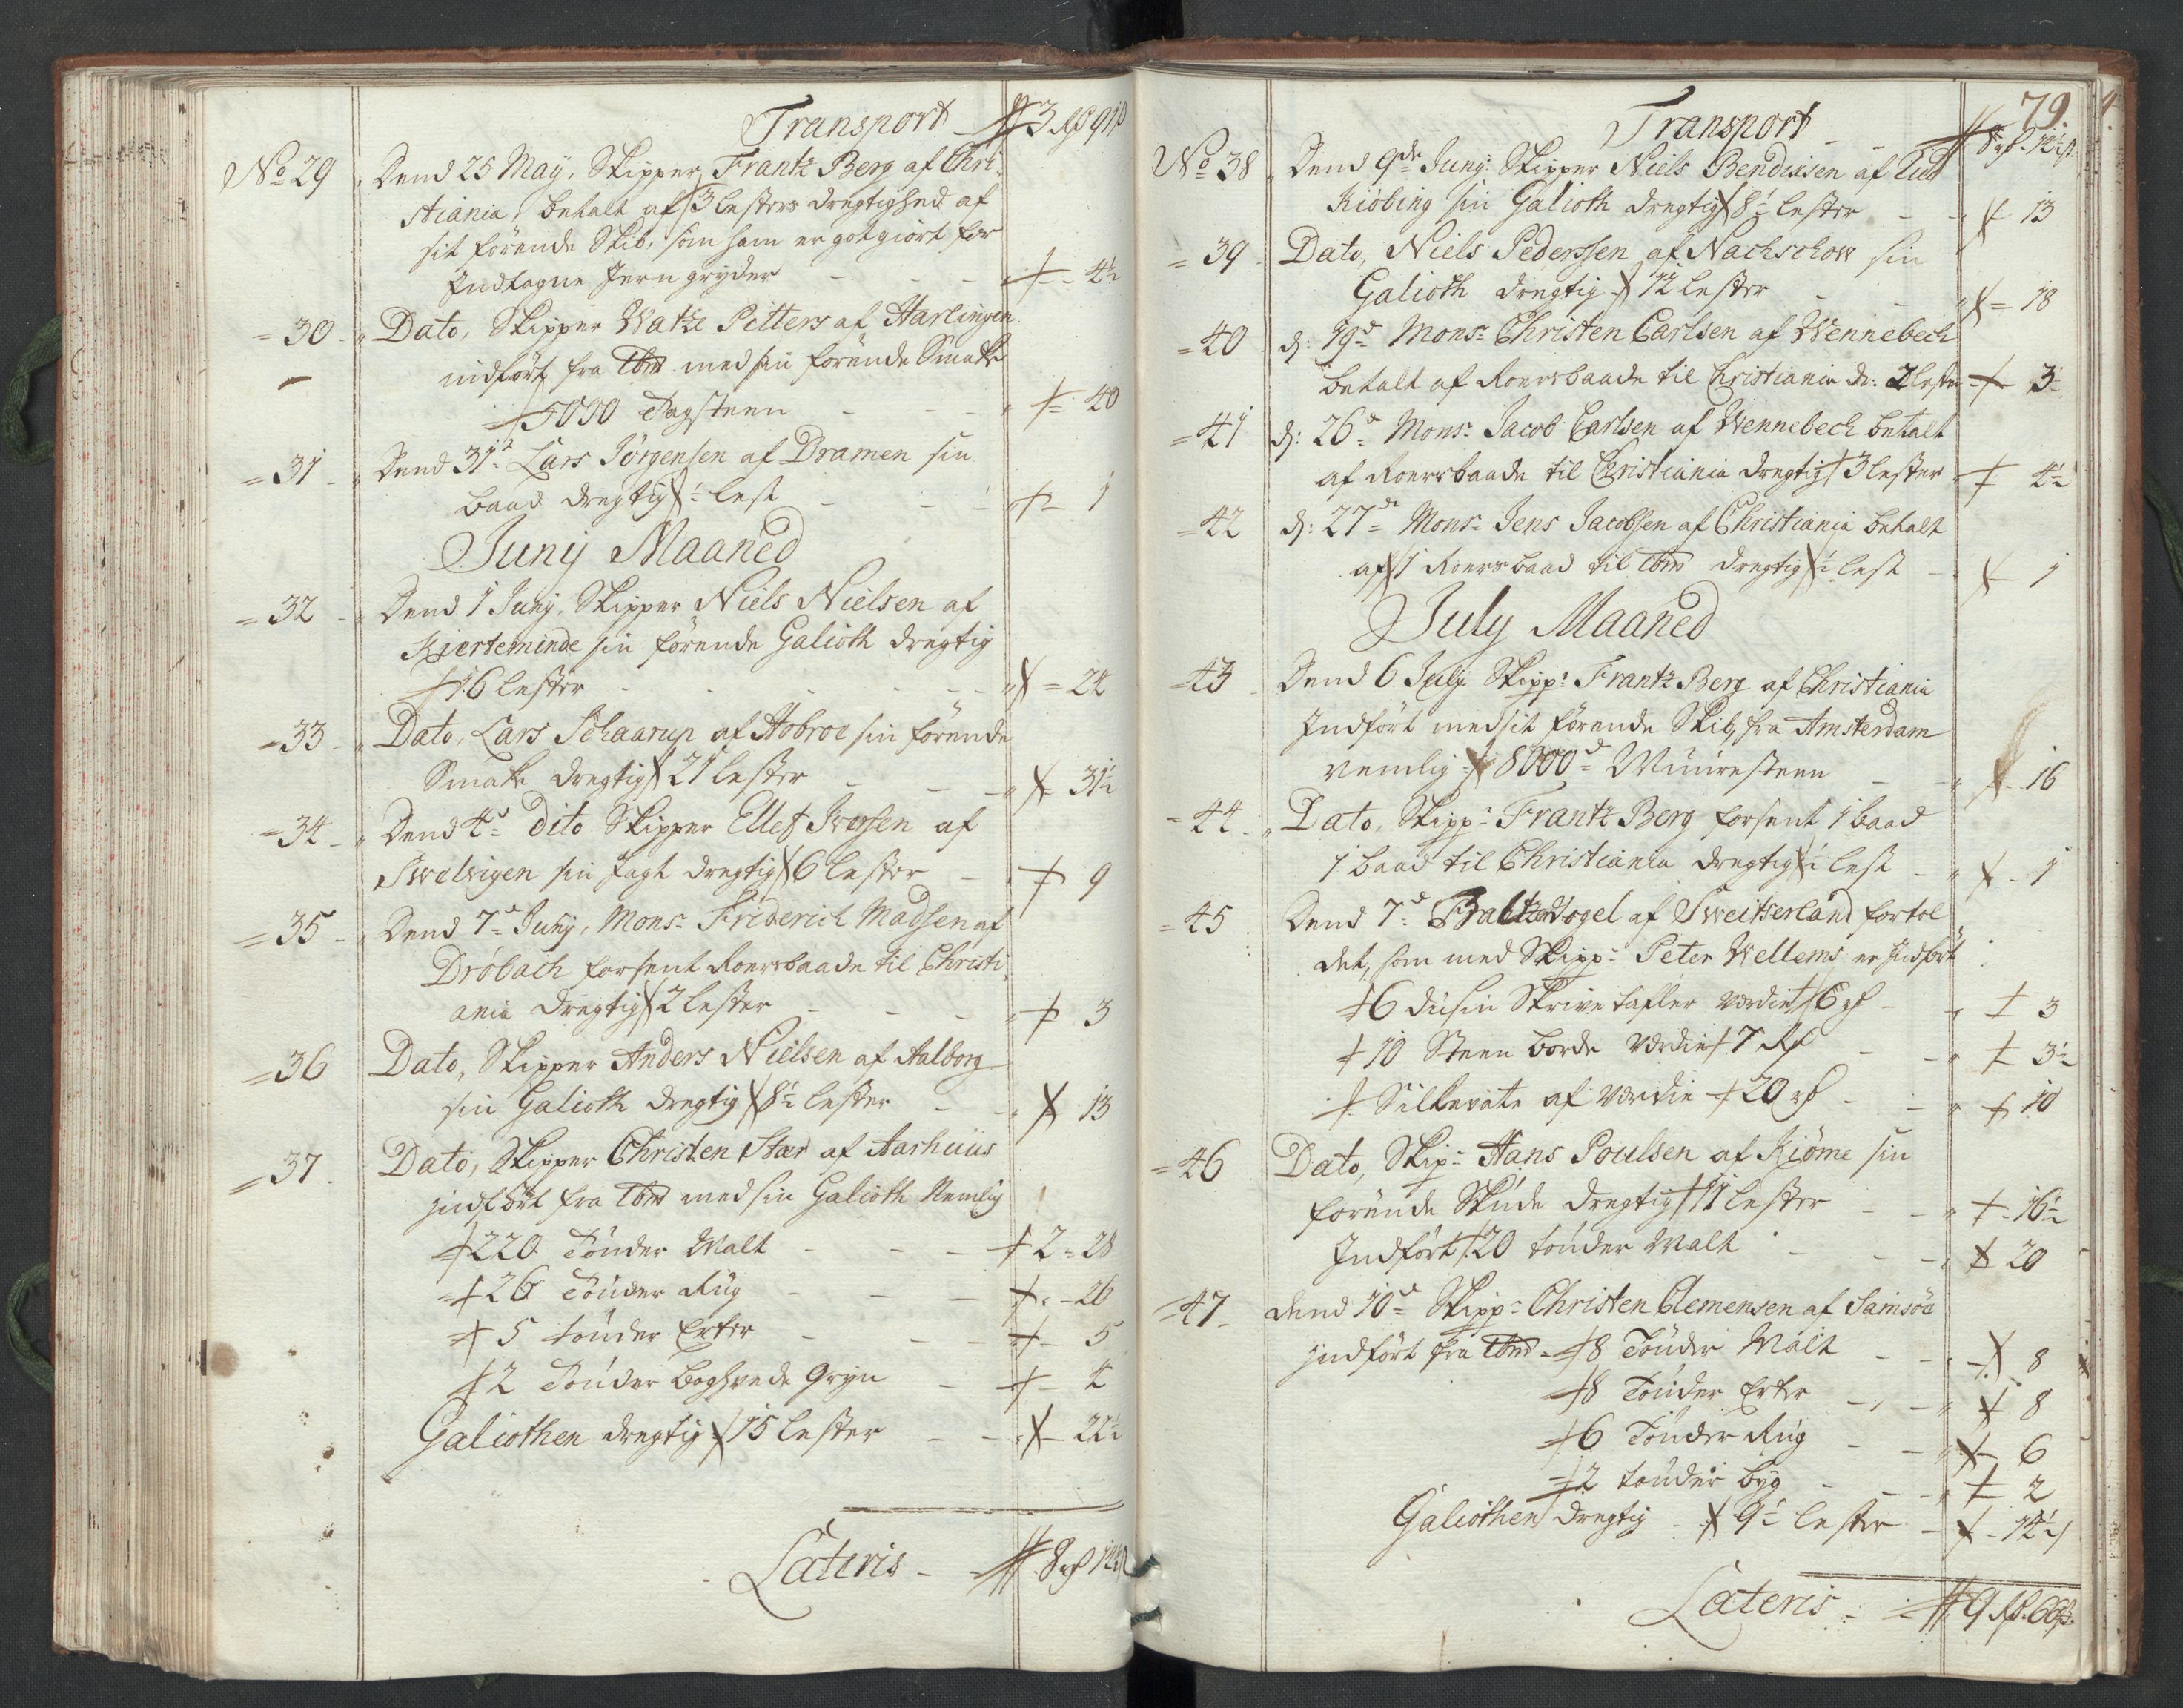 Transport - 3 rd 91 ß
No 29 Dend 25 May, Skipper Frantz Berg af Chri-
stiania, betalt af 3 lesters dregtighed af
sit förende Skib, som ham er godgiort for
Indtagne Jern gryder - - - 4½
= 30 - Dato, Skipper Watze Pitters af Harlingen
indfört fra med sin förende Smakke
5000 Tagsteen - - - 40
= 31 - Dend 31te Lars Jörgensen af Dramen sin
baad dregtig ½ lest - - - 1
Junij Maaned
= 32 - Dend 1 Junij, Skipper Niels Nielsen af
Kierteminde sin förende Galioth dregtig
16 lester - - - = 24
= 33 - Dato, Lars Schaarup af Hobroe sin förende
Smakke dregtig 21 lester - - - 31½
= 34 - Dend 4de dito Skipper Ellef Iversen af
Swelvigen sin Jagt dregtig 6 lester - 9
= 35 - Dend 7de Junij, Monsr Friderich Madsen af
Dröbach forsent Roersbaade til Christi-
ania dregtig 2 lester - - - 3
= 36 Dato, Skipper Anders Nielsen af Aalborg
sin Galioth dregtig 8½ lester - - 13
= 37 - Dato, Skipper Christen Stær af Aarhuus
indfört fra med sin Galioth Nemlig
220 Tönder Malt - - - 2 = 28
26 Tönder Rüg - - - 26
5 tönder Erter - - - 5
2 Tönder boghvede Gryn - - 4
Galiothen dregtig 15 lester - - 22½
Lateris - 8 rd 12½ ß
79.
Transport - - 8 rd 12½ ß
No 38 Dend 9de Junij Skipper Niels Bendixsen af Rud
Kiöbing sin Galioth dregtig 8½ lester - - 13
= 39 Dato, Niels Pederssen af Nachschow sin
Galioth dregtig 12 lester - - = 18
= 40 d: 19de Monsr Christen Carlsen af Wennebech
betalt af Roersbaade til Christiania dr: 2 lester - 3
= 41 d: 26de Monsr Jacob Carlsen af Wennebech betalt
af Roersbaade til Christiania dregtig 3 lester - 4½
= 42 d: 27de Monsr Jens Jacobsen af Christiania betalt
af 1 Roersbaad til dregtig ½ lest - 1
July Maaned
= 43 Dend 6 July Skippr Frantz Berg af Christiania
Indfört med sit förende Skib, fra Amsterdam
nemlig 8000de Muuresteen - - 16
= 44 - Dato, Skippr Frantz Berg forsent 1 baad
1 baad til Christiania dregtig ½ lest - - 1
= 45 Dend 7de Vogel af Sweitserland fortol
det, som med Skippr Peter Wellems er Indfört
6 dusin Skrive tafler værdie 6 rd - - 3
10 Steen borde værdie 7 Rd - - 3½
af værdie 20 rd - - 10
= 46 Dato, Skipr Hans Poulsen af Kiöme sin
förende Skude dregtig 11 lester - - 16½
Indfört 20 tönder Malt - - 20
= 47 - dend 10de Skippr Christen Clemensen af Samsöe
indfört fra 8 Tönder Malt - - 8
8 Tönder Erter - - 8
6 Tönder Rüg - - 6
2 tönder byg - - 2
Galiothen dregtig 9½ lester - - 14½
Lateris - 9 Rd 66 ß